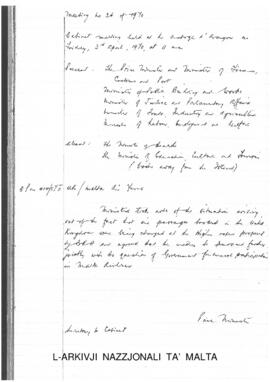 Meeting No 24 of 1970
Cabinet meeting held at the Auberge d'Aragon on
Friday, 3rd April, 1970, at 11 a.m.
Present: The Prime Minister and Minister of Finance,
Customs and Port
Minister of Public Building and Works
Minister of Justice and Parliamentary Affairs
Minister of Trade, Industry and Agriculture
Minister of Labour, and Welfare
Absent: The Minister of Health
The Minister of Education, Culture and Tourism
(both away from the Island)
UK/Malta Air Fares
Ministers took note of the situation arising
out of the fact that air passages booked in the United
Kingdom were being charged at the higher rates proposed
by and agreed that the matter be further
jointly with the question of Government financial participation
in Malta Airlines
Prime Minister
Secretary to Cabinet
L-ARKIVJI NAZZJONALI TA' MALTA